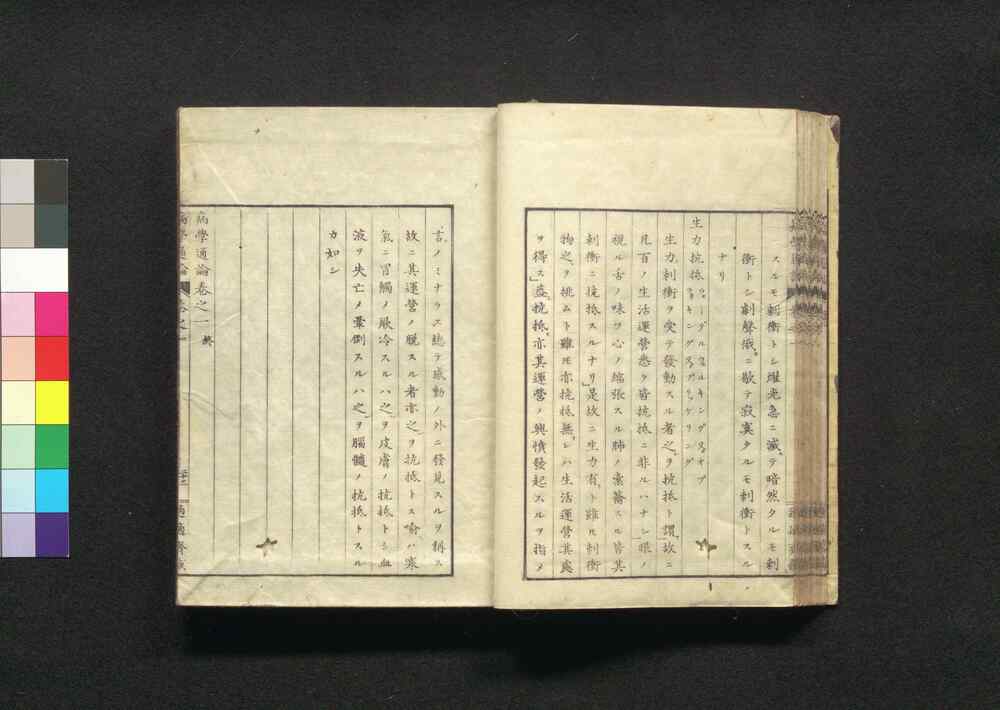 スルモ刺衝トシ燿光急ニ滅テ暗然タルモ刺
衝トシ劇聲俄ニ歇テ寂寞タルモ刺衝トスル
ナリ
生力抗抵
生力刺衝ヲ受テ發動スル者之ヲ抗抵ト謂故ニ
凡百ノ生活運營悉ク皆抗抵ニ非ルハナシ眼ノ
視ル舌ノ味フ心ノ縮張スル肺ノ橐籥スル皆其
刺衝ニ抗抵スルナリ是故ニ生力有ト雖𪜈刺衝
物之ヲ挑ムト雖𪜈亦抗抵無レハ生活運營其處
ヲ得ス蓋抗抵亦其運營ノ興憤發起スルヲ指メ
言ノミナラス總テ感動ノ外ニ發見スルヲ稱ス
故ニ其運營ノ脱スル者亦之ヲ抗抵トス喩ハ寒
氣ニ冒觸メ厥冷スルハ之ヲ皮膚ノ抗抵トシ血
液ヲ失亡メ暈倒スルハ之ヲ腦髓ノ抗抵トスル
カ如シ
病學通論卷之一 終
病學通論